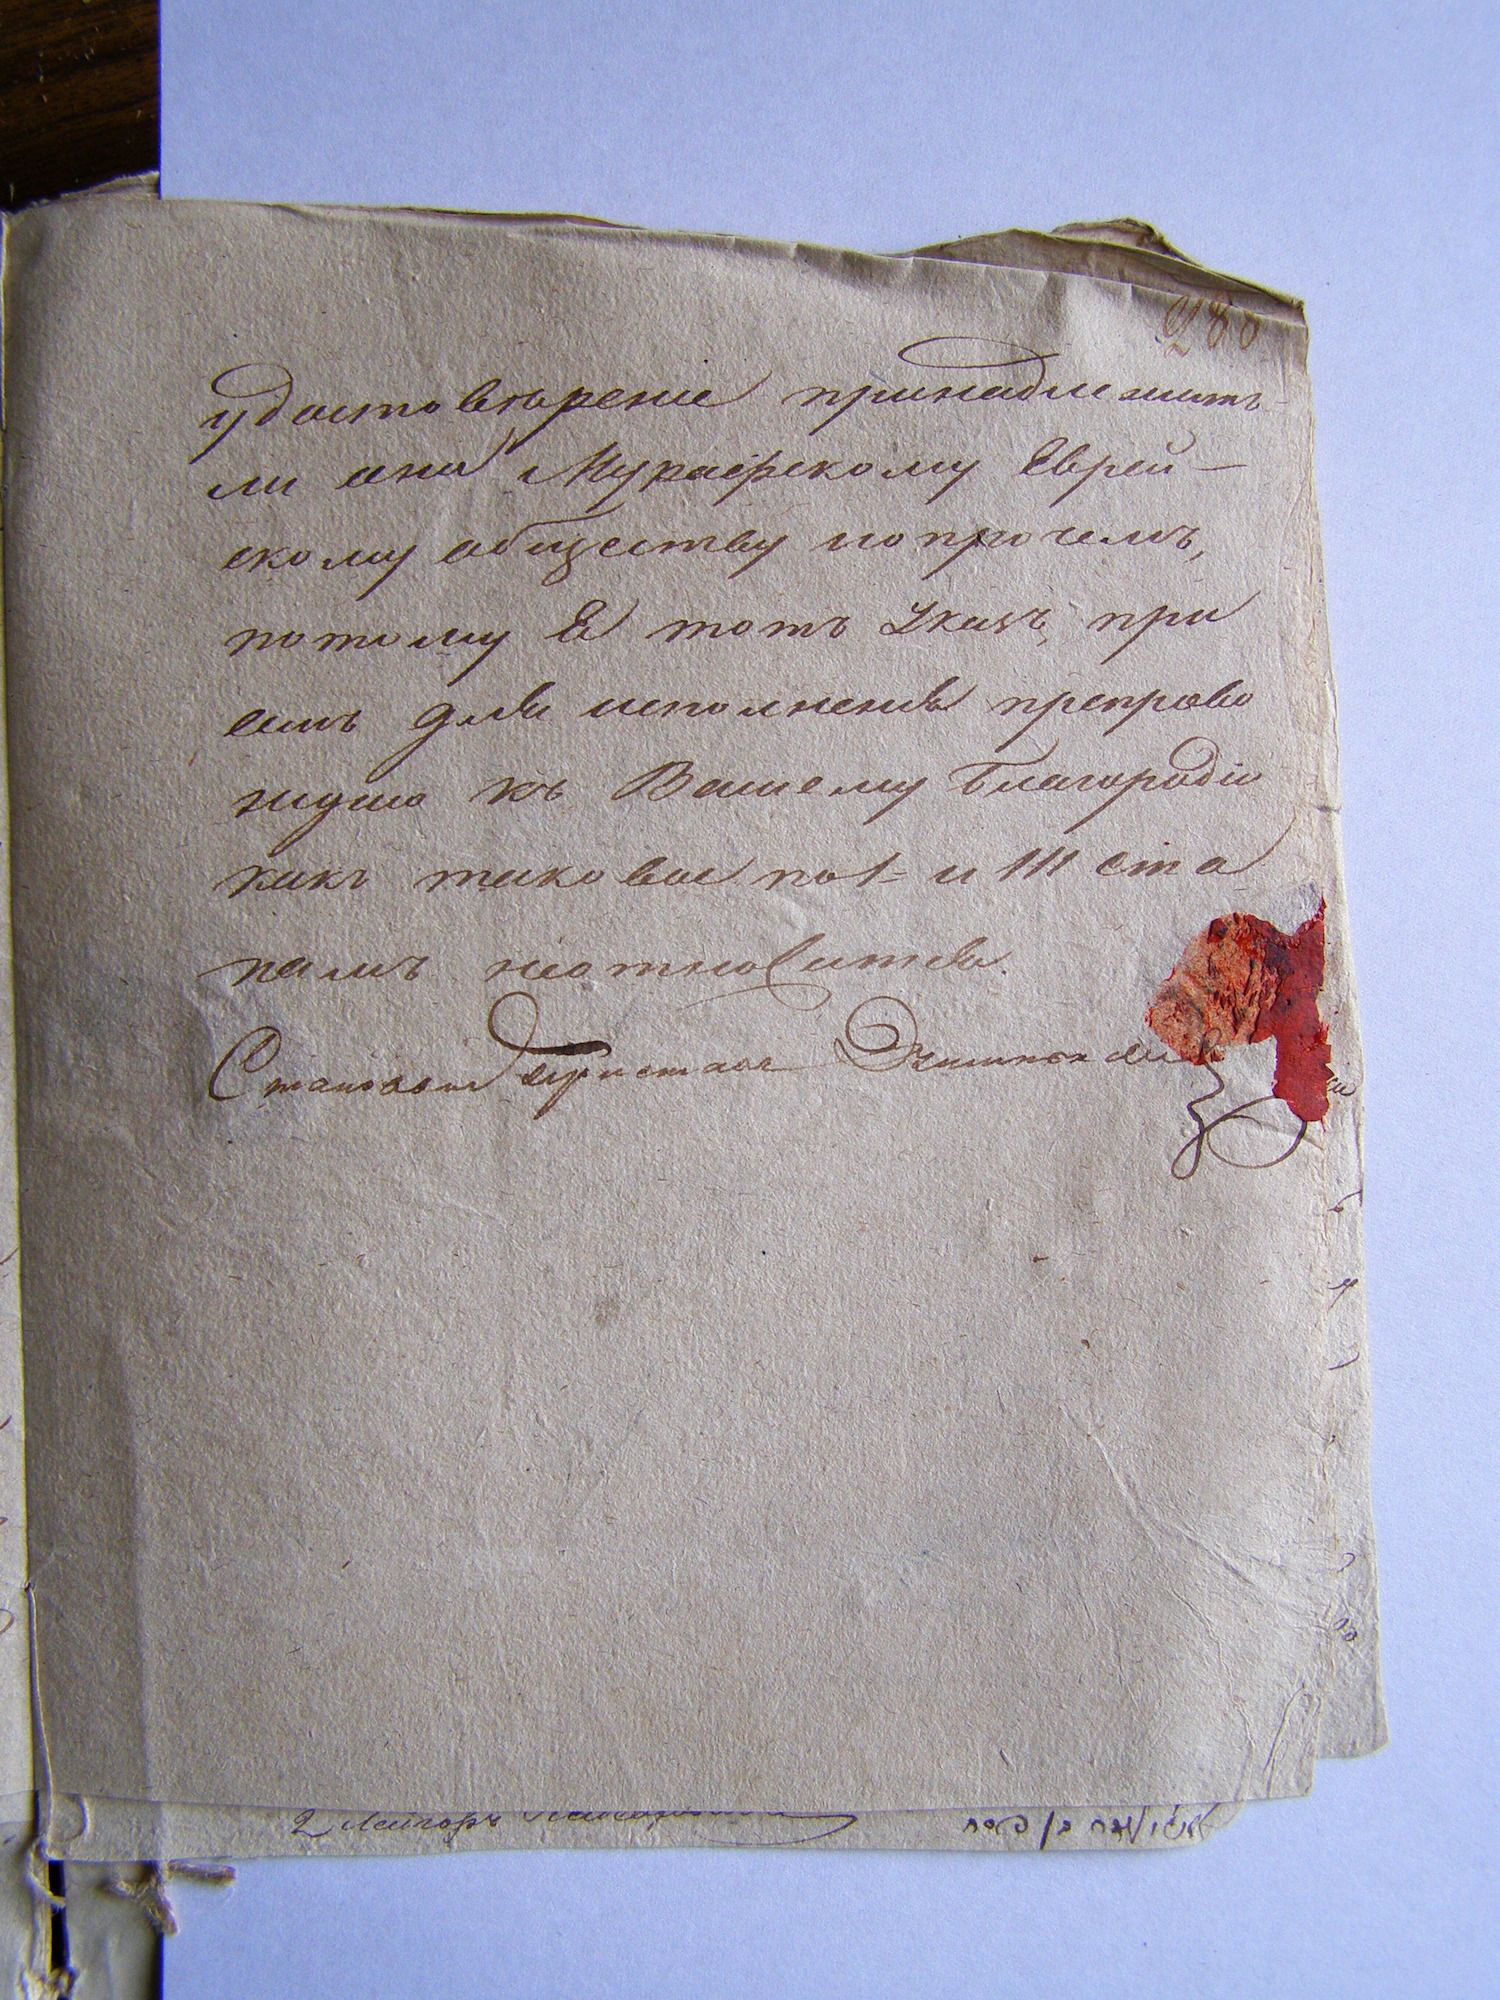 288
удостовѣреніе принадлежатъ
ли они Мурафскому Еврей-
скому обществу и о прочемъ,
потому Я тотъ Указъ, при
семъ для исполненія препрово
ждаю къ Вашему Благородію
какъ таковое по 1 и III ста
намъ неотносится.
Становый Приставъ
2 Лейзоръ
בן פסח